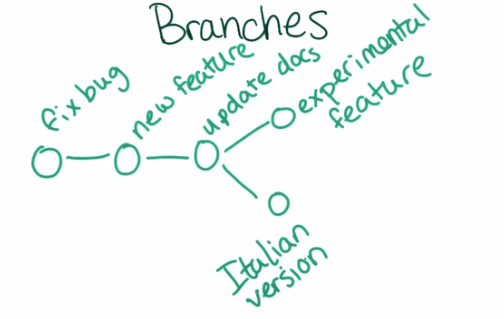 Branches
fix bug
new feature
update docs
experimental
feature
Italian
version